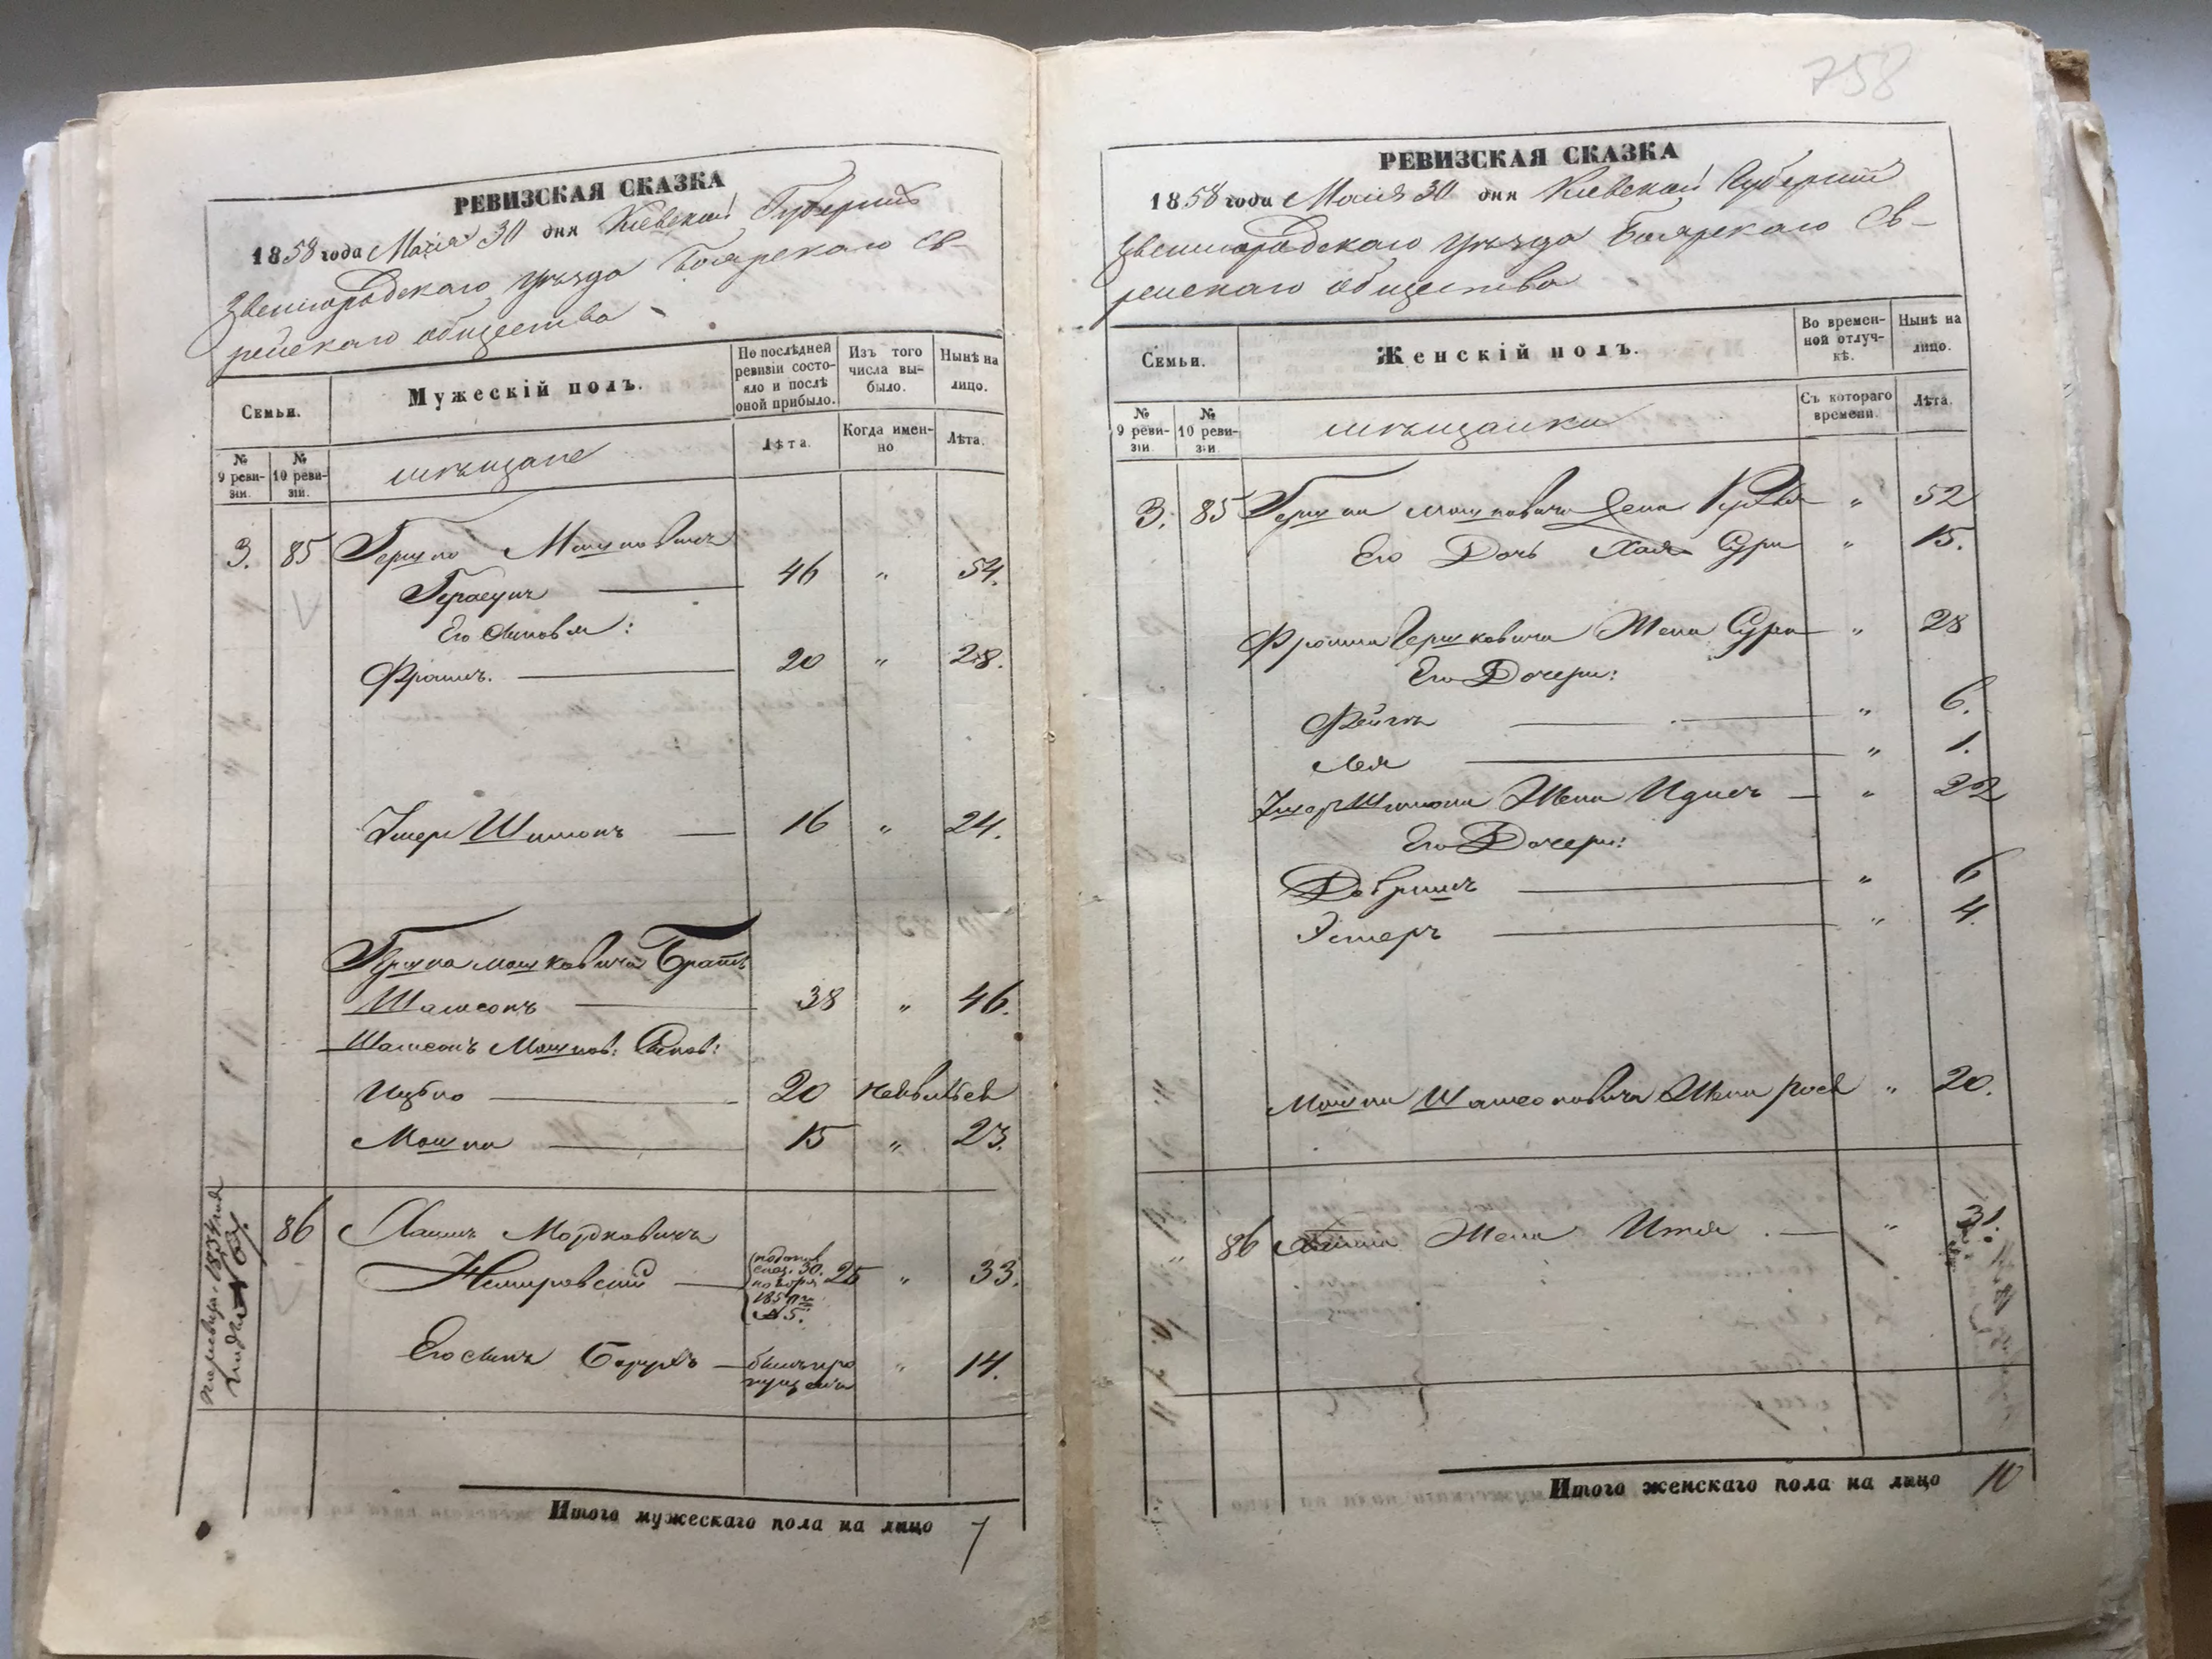 РЕВИЗСКАЯ СКАЗКА
1858 года Маія 30 дня Кіевской Губерніи
Звенигородскаго уѣзда Боярскаго Ев-
рейскаго общества
Семьи.
Мужескій полъ.
По послѣдней ревизіи состо-
яло и послѣ оной прибыло.
Изъ того числа вы-
было.
Нынѣ на лицо.
№ 9 реви-
зіи.
№ 10 реви-
зіи.
мѣщане
Лѣта.
Когда имен-
но
Лѣта.
3. 85 Гершко Мошковичъ
46 " 54.
Его сыновья:
Фроимъ. 20 " 28.
Умер Шимонъ 16 " 24.
Гершка Мошковича Братъ
Шамсонъ 38 " 46.
Шамсонъ Мошков: Сынов:
Ицко 20
Мошка 15 " 23.
86 Хаимъ Мордковичъ
Немировскій 25 " 33.
Его сынъ Борухъ былъ про
пущенъ " 14.
Итого мужескаго пола на лицо 7
758
РЕВИЗСКАЯ СКАЗКА
1858 года Маія 30 дня Кіевской Губерніи
Звенигородскаго уѣзда Боярскаго Ев-
рейскаго общества
Семьи.
Женскій полъ.
Во времен-
ной отлуч-
кѣ.
Нынѣ на лицо.
№ 9 реви-
зіи
№ 10 реви-
зіи
мѣщанки
Съ котораго времени.
Лѣта.
3. 85 Гершка Мошковича Жена " 52
Его Дочь Хая Сура " 15.
Фроима Гершковича Жена Сура " 28
Его Дочери:
Фейга " 6.
Лея " 1.
Шимона Жена Идесъ " 22
Его Дочери:
Добришъ " 6
Эстеръ " 4.
Мошка Шамсоновича Жена Рося " 20.
86 Хаима Жена Итя " 31.
Итого женскаго пола на лицо 10